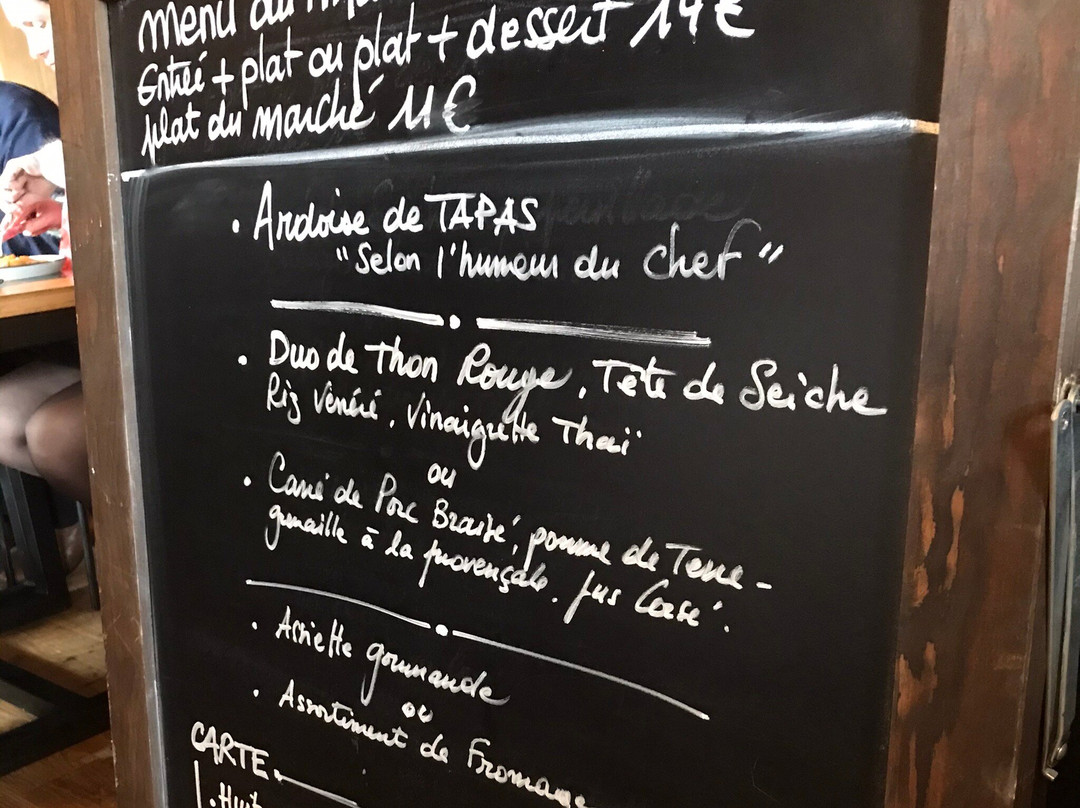 menu du
Entrée + plat ou plat + dessert 14€
plat du marché 11€
. Ardoise de TAPAS
"Selon l'humeur du chef"
. Duo de Thon Rouge, Tête de Seiche
Riz Vénéré, Vinaigrette Thaï
ou
. Carré de Porc Braisé, pomme de Terre -
grenaille à la provençale. Jus Corsé.
. Assiette gourmande
ou
. Assortiment de Fromage
CARTE
. Huit